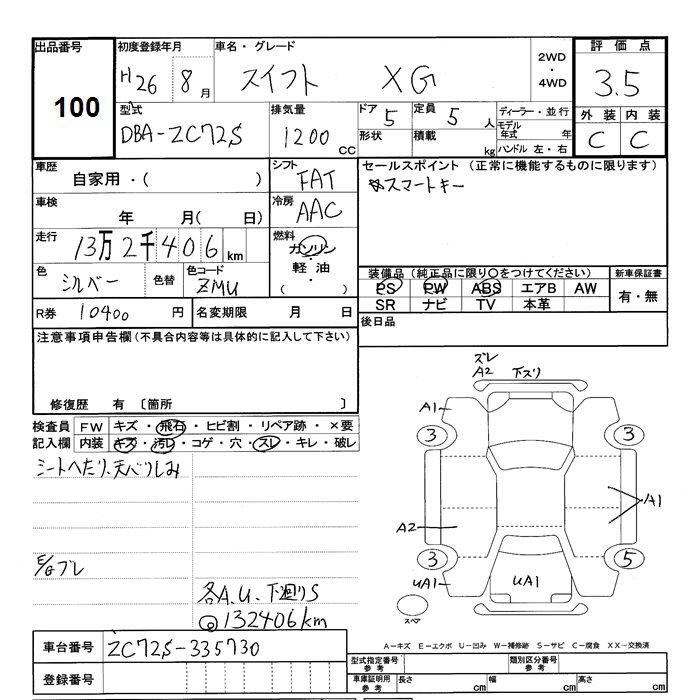 出品番号 初度登録年月 車名・グレード 2WD・4WD 評価点
100 H26 8月 スイフト XG 3.5
型式 排気量 ドア 定員 ディーラー・並行 外装 内装
DBA-ZC72S 1200cc 5 5人 モデル年式 年 C C
形状 積載 kg ハンドル 左・右
車歴 シフト セールスポイント(正常に機能するものに限ります)
自家用・( ) FAT スマートキー
車検 冷房
年 月( 日) AAC
走行 燃料
13万2千406km ガソリン・軽油・( )
色 色替 色コード 装備品(純正品に限り○をつけてください) 新車保証書
シルバー ZMU PS PW ABS エアB AW 有・無
SR ナビ TV 本革
R券 10400円 名変期限 月 日 後日品
注意事項申告欄(不具合内容等は具体的に記入して下さい)
修復歴 有 〔箇所 〕
検査員 FW キズ・飛石・ヒビ割・リペア跡・×要
記入欄 内装 キズ・汚レ・コゲ・穴・スレ・キレ・破レ
シートへたり、天バリしみ
E/Gブレ
各A.U. 下廻りS
132406km
ズレ
A2 下スリ
A1
3 3
A1
A2
3 5
UA1 UA1
スペア
A-キズ E-エクボ U-凹み W-補修跡 S-サビ C-腐食 XX-交換済
車台番号 ZC72S-335730
登録番号
型式指定番号 参考 類別区分番号 参考
車庫証明用 参考 長さ cm 幅 cm 高さ cm